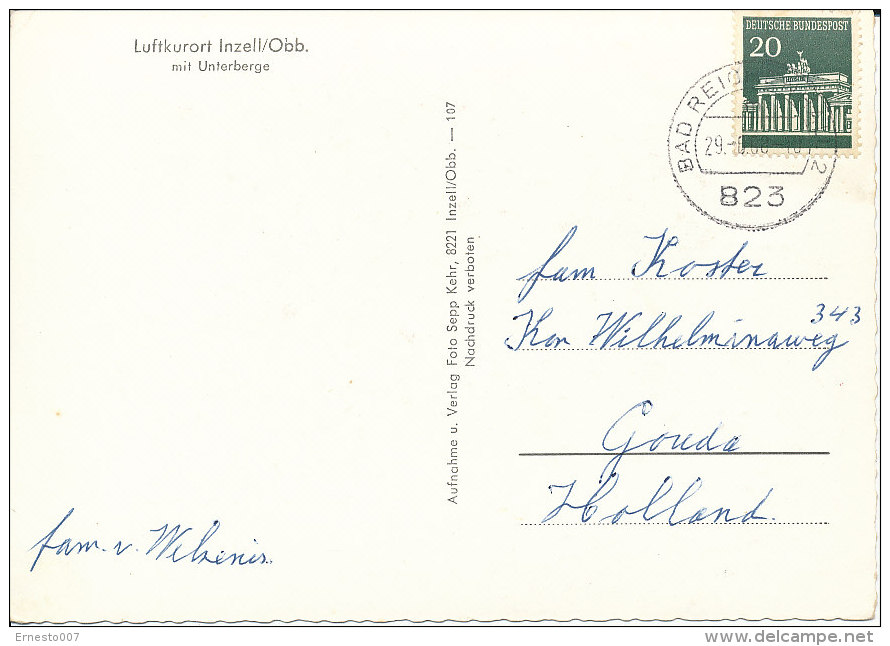 Luftkurort Inzell/Obb.
mit Unterberge
DEUTSCHE BUNDESPOST
20
BAD REIC
29.
2
823
Aufnahme u. Verlag Foto Sepp Kehr, 8221 Inzell/Obb. — 107
Nachdruck verboten
fam Koster
343
Kon Wilhelminaweg
Gouda
Holland.
fam. v. Welzenis.
Ernesto007
delcampe.net